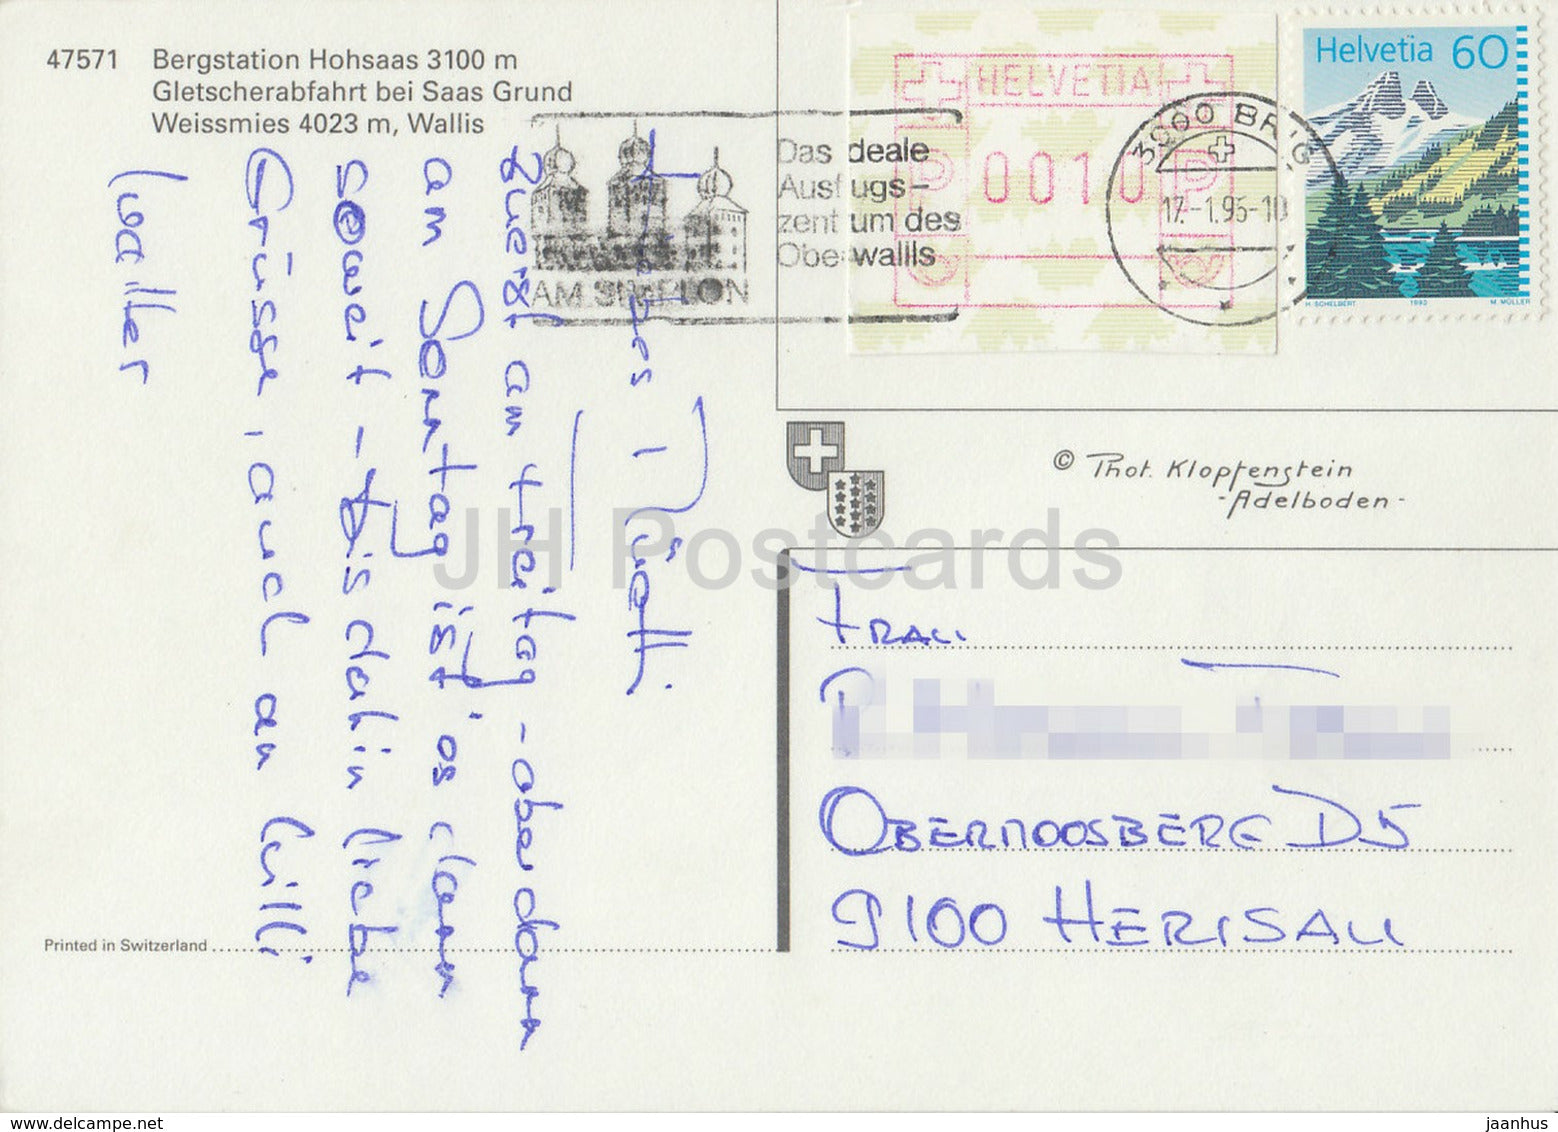 47571 Bergstation Hohsaas 3100 m
Gletscherabfahrt bei Saas Grund
Weissmies 4023 m, Wallis
AM SIMPLON
Das ideale
Ausflugs-
zentrum des
Oberwallis
HELVETIA
P 0010 P
3900 BRIG
17.-1.95-10
Helvetia 60
H. SCHELBERT 1992 M. MÜLLER
© Phot. Klopfenstein
- Adelboden -
Liebes Müetti
zuerst am Freitag - oder dann
am Sonntag ist's dann
soweit - Bis dahin liebe
Grüsse, auch an Willi
Walter
FRAU
OBERMOOSBERG D5
9100 HERISAU
Printed in Switzerland
JH Postcards
www.delcampe.net
jaanhus